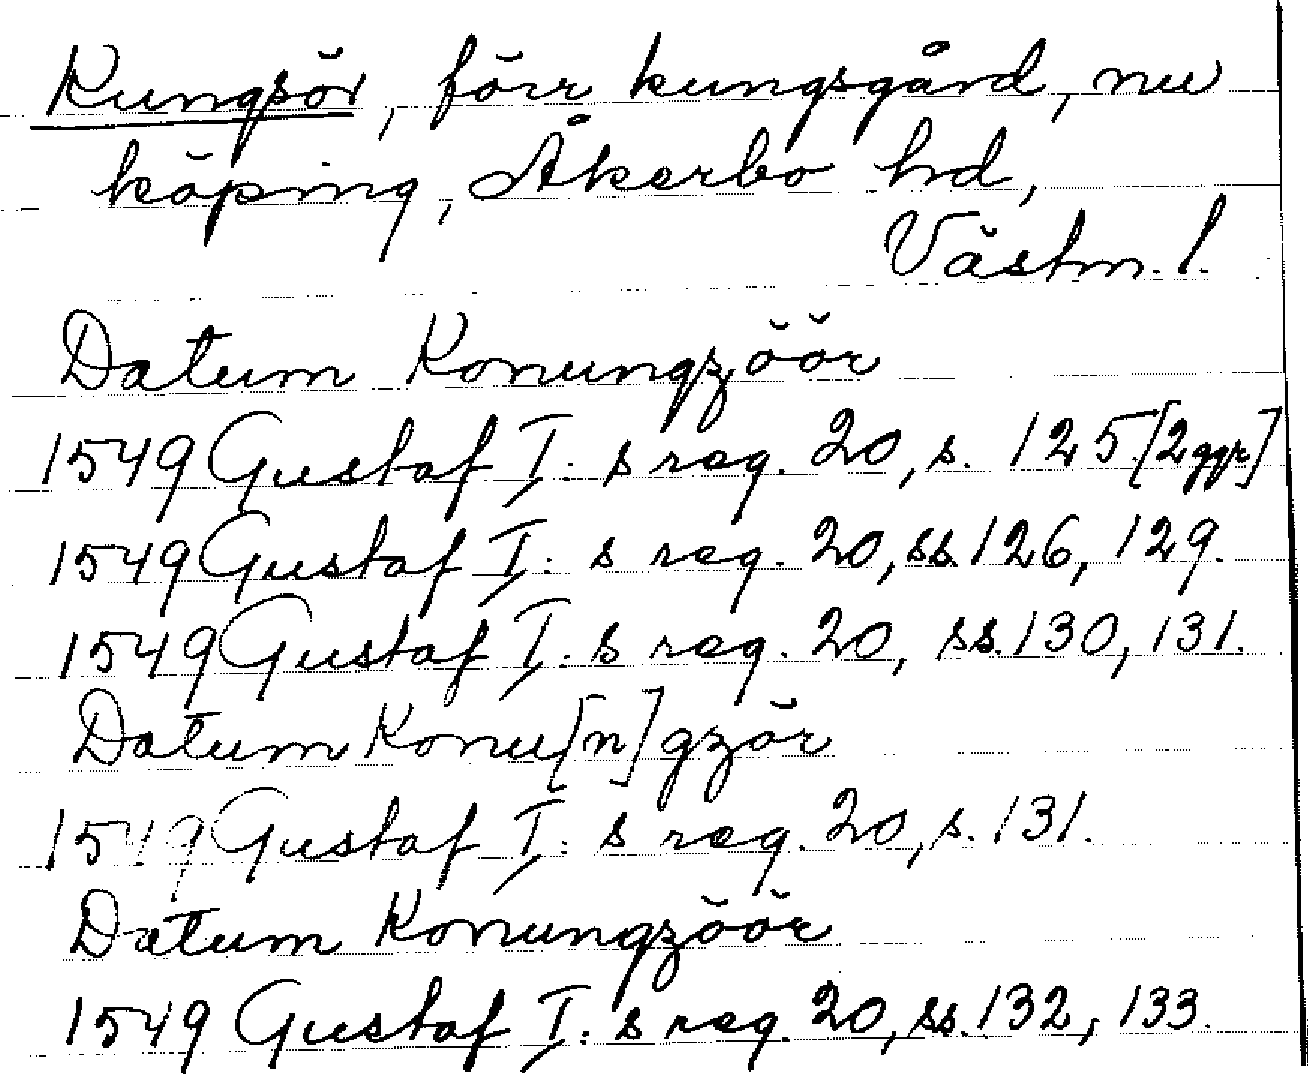 Kungsör, förr kungsgård, nu
köping, Åkerbo hd,
Västm. l.
Datum Konungzöör
1549 Gustaf I: s reg. 20, s. 125 [2 ggr]
1549 Gustaf I: s reg. 20, ss. 126, 129.
1549 Gustaf I: s reg. 20, ss. 130, 131.
Datum Konu[n]gzör
1549 Gustaf I: s reg. 20, s. 131.
Datum Konungzöör
1549 Gustaf I: s reg. 20, ss. 132, 133.